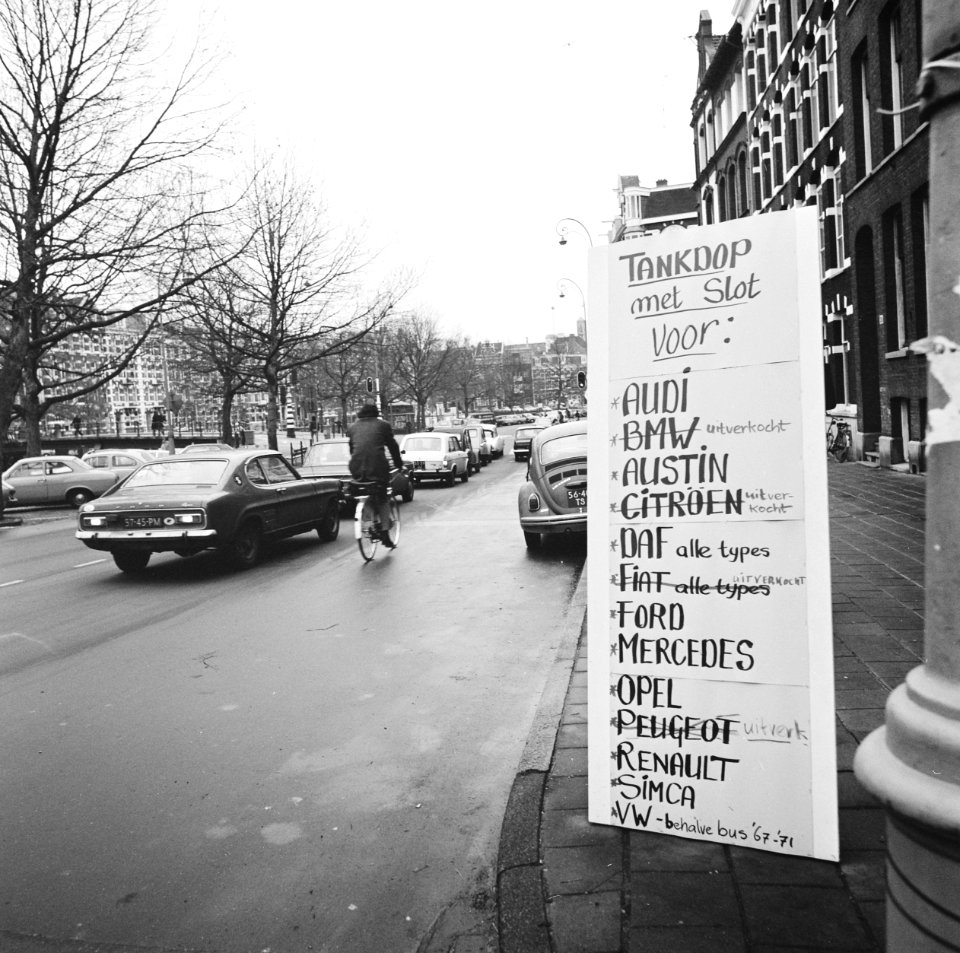 TANKDOP
met Slot
voor:
* AUDI
* BMW. uitverkocht
* AUSTIN
* CITROËN uitver-
kocht
* DAF alle types
* FIAT alle types UITVERKOCHT
* FORD
* MERCEDES
* OPEL
* PEUGEOT uitverk
* RENAULT
* SIMCA
* VW - behalve bus '67-'71
57-45-PM
56-4
TS